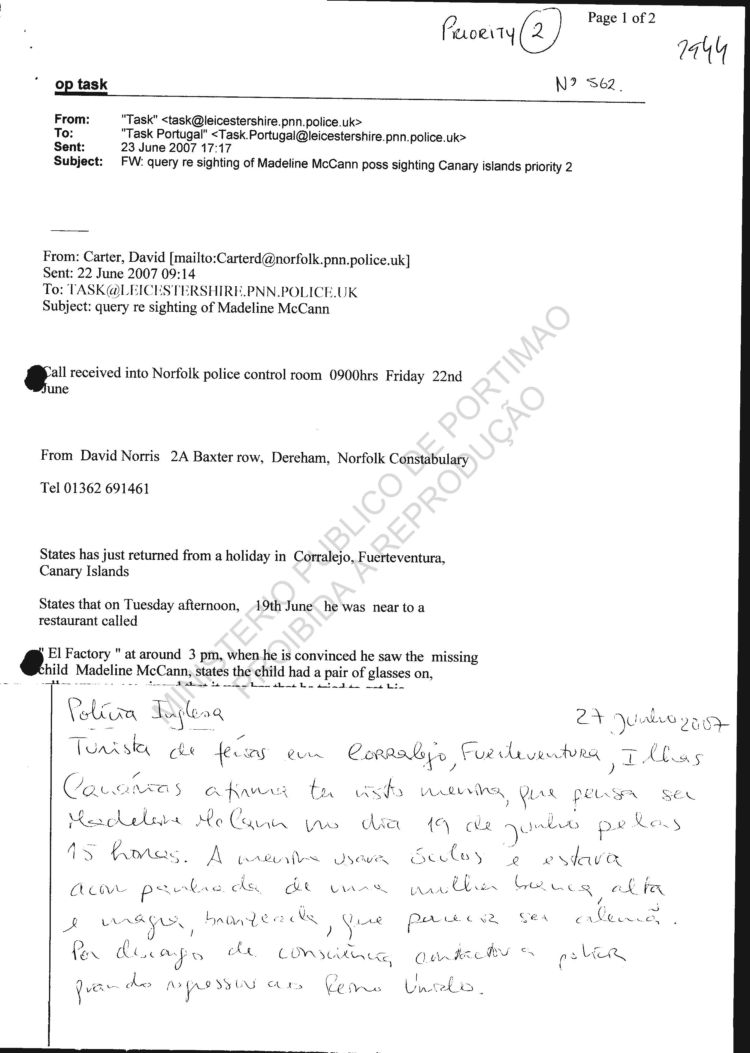 PRIORITY 2
Page 1 of 2
2944
op task
Nº 562.
From: "Task" <task@leicestershire.pnn.police.uk>
To: "Task Portugal" <Task.Portugal@leicestershire.pnn.police.uk>
Sent: 23 June 2007 17:17
Subject: FW: query re sighting of Madeline McCann poss sighting Canary islands priority 2
From: Carter, David [mailto:Carterd@norfolk.pnn.police.uk]
Sent: 22 June 2007 09:14
To: TASK@LEICESTERSHIRE.PNN.POLICE.UK
Subject: query re sighting of Madeline McCann
Call received into Norfolk police control room 0900hrs Friday 22nd
June
From David Norris 2A Baxter row, Dereham, Norfolk Constabulary
Tel 01362 691461
States has just returned from a holiday in Corralejo, Fuerteventura,
Canary Islands
States that on Tuesday afternoon, 19th June he was near to a
restaurant called
" El Factory " at around 3 pm, when he is convinced he saw the missing
child Madeline McCann, states the child had a pair of glasses on,
MINISTERIO PUBLICO DE PORTIMAO
PROIBIDA A REPRODUÇÃO
Polícia Inglesa
27 Junho 2007
Turista de férias em Corralejo, Fuerteventura, Ilhas
Canárias afirma ter visto menina, que pensa ser
Madeleine McCann no dia 19 de Junho pelas
15 horas. A menina usava óculos e estava
acompanhada de uma mulher branca, alta
e magra, bronzeada, que parecia ser alemã.
Por descargo de consciência contactou a polícia
quando regressou ao Reino Unido.